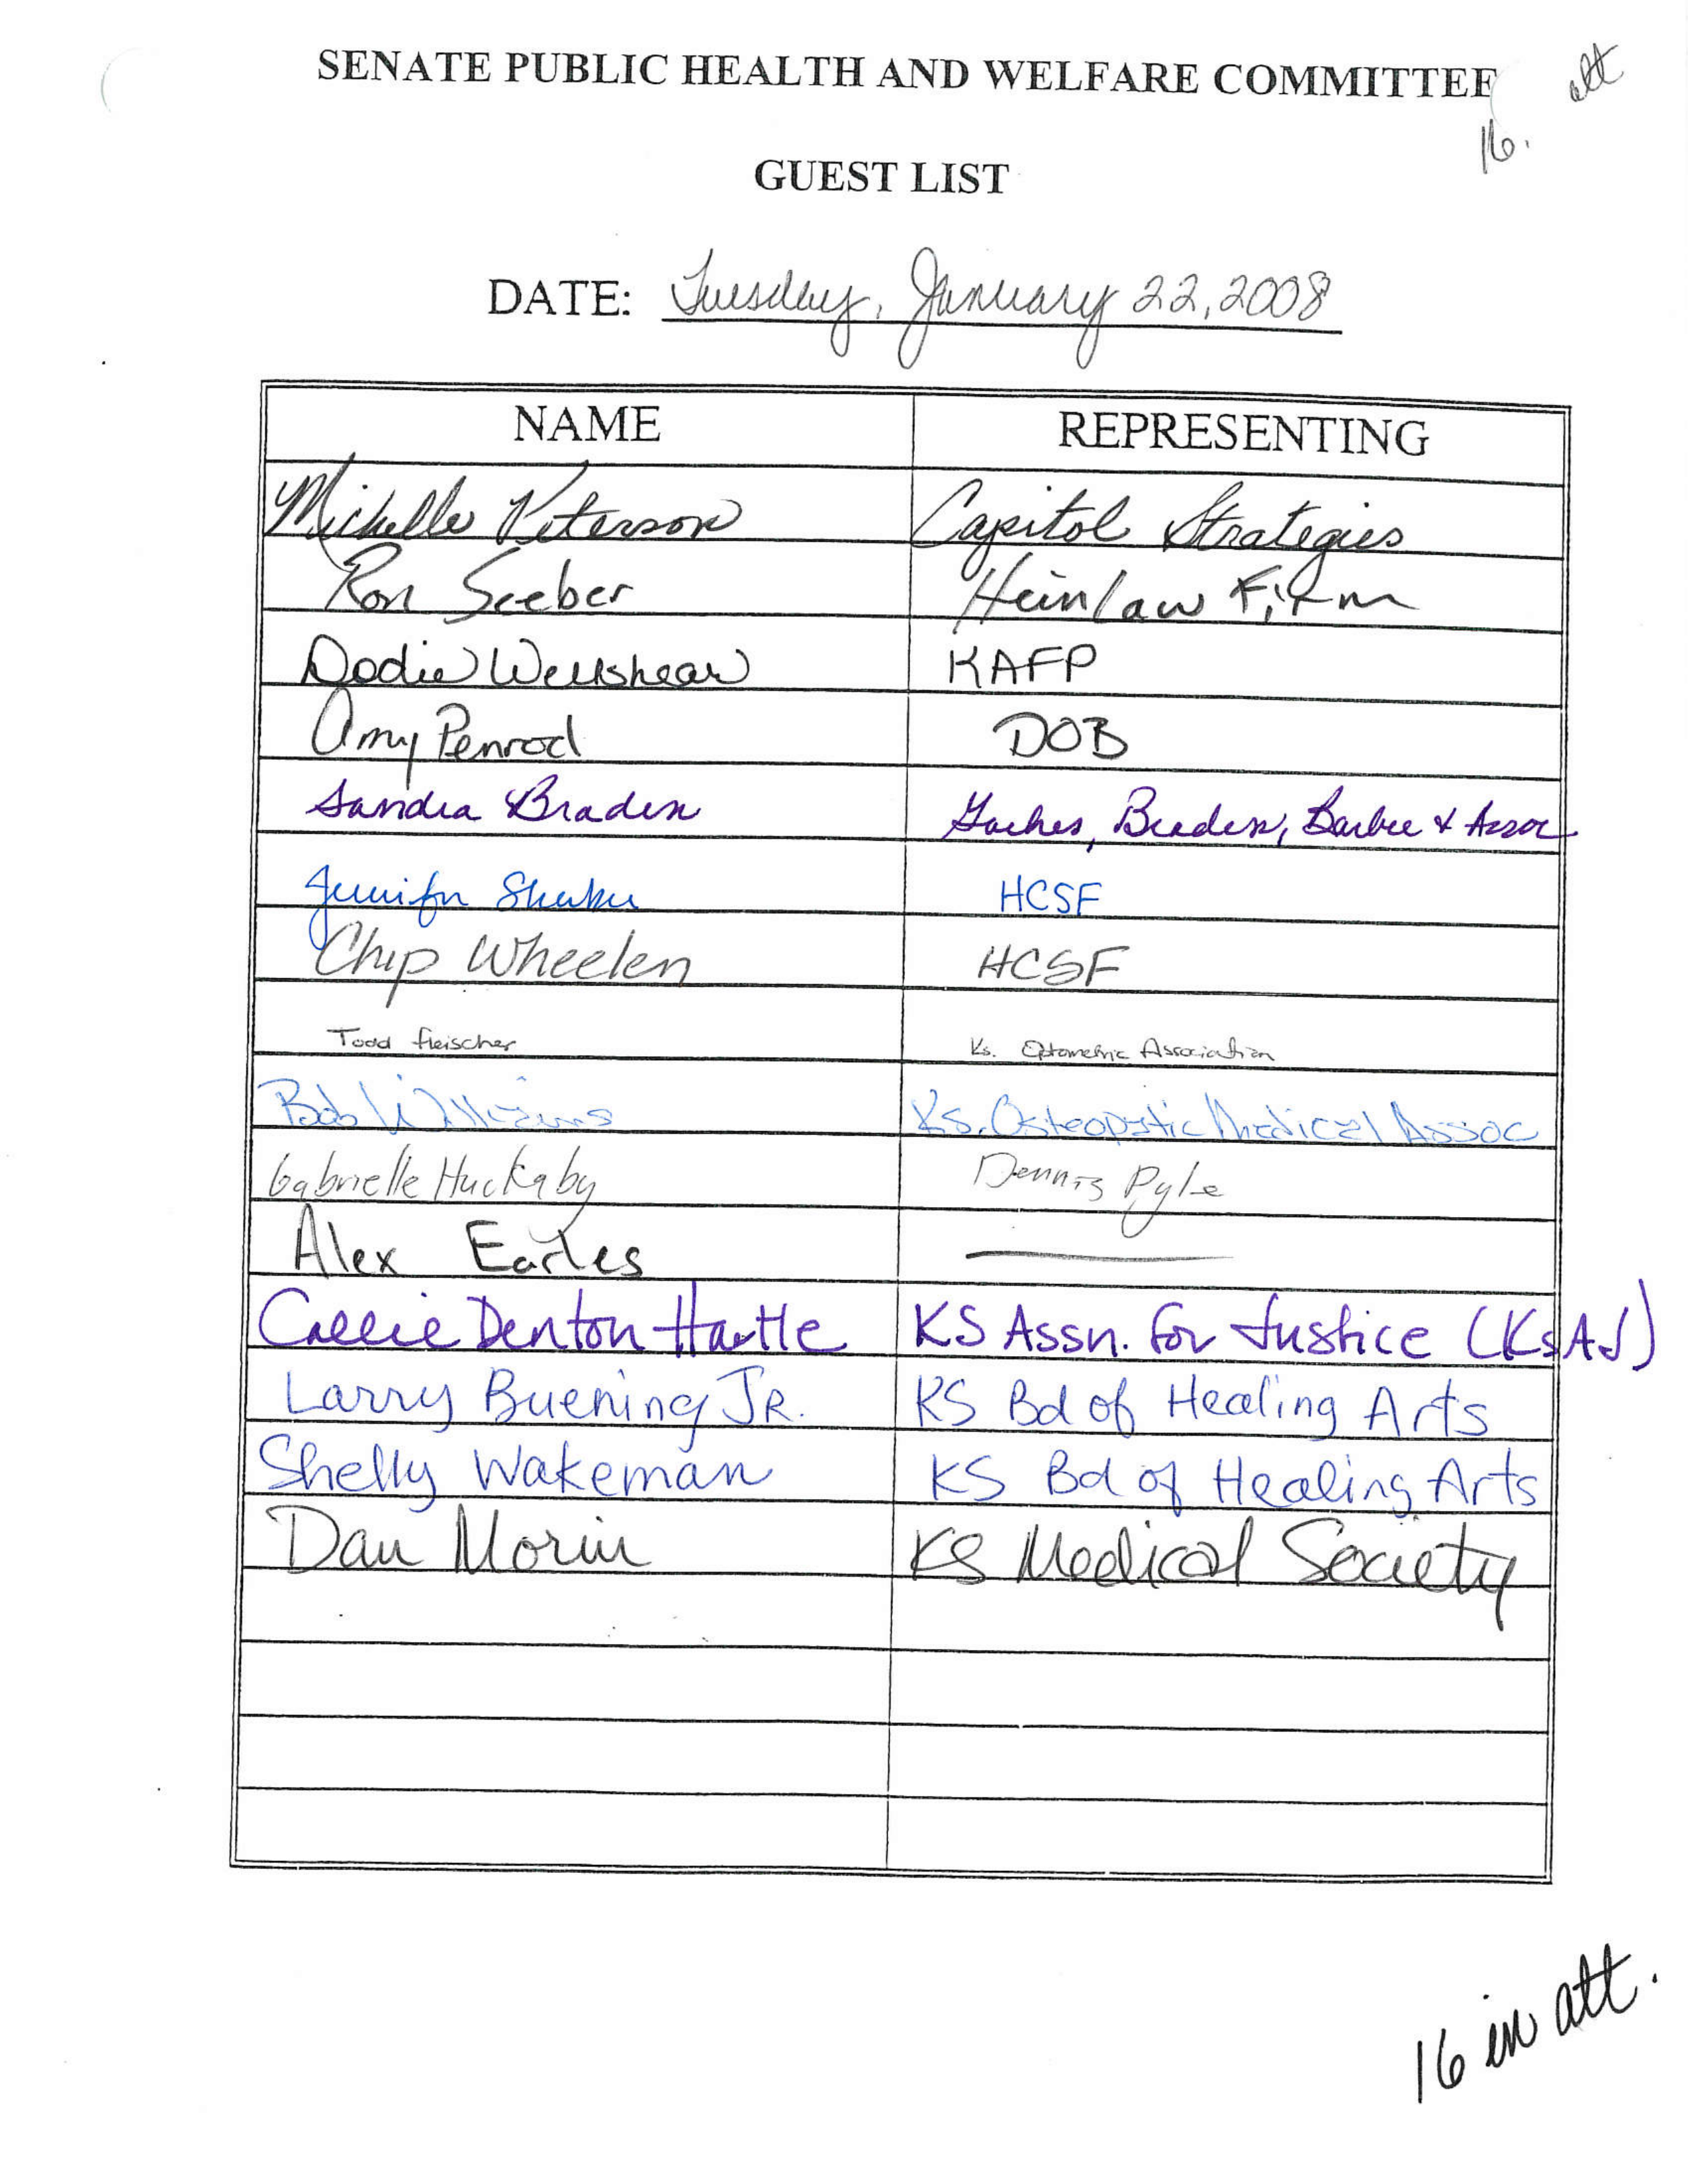 SENATE PUBLIC HEALTH AND WELFARE COMMITTEE
att
16.
GUEST LIST
DATE: Tuesday, January 22, 2008
NAME REPRESENTING
Michelle Peterson Capitol Strategies
Ron Seeber Hein Law Firm
Dodie Wellshear KAFP
Amy Penrod DOB
Sandra Braden Gaches, Braden, Barbee & Assoc
Jennifer HCSF
Chip Wheelen HCSF
Todd Fleischer Ks. Optometric Association
Bob Williams Ks. Osteopathic Medical Assoc
Gabrielle Huckaby Dennis Pyle
Alex Earles
Callie Denton Hartle KS Assn. for Justice (KsAJ)
Larry Buening JR. KS Bd of Healing Arts
Shelly Wakeman KS Bd of Healing Arts
Dan Morin KS Medical Society
16 in att.